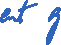 ent g